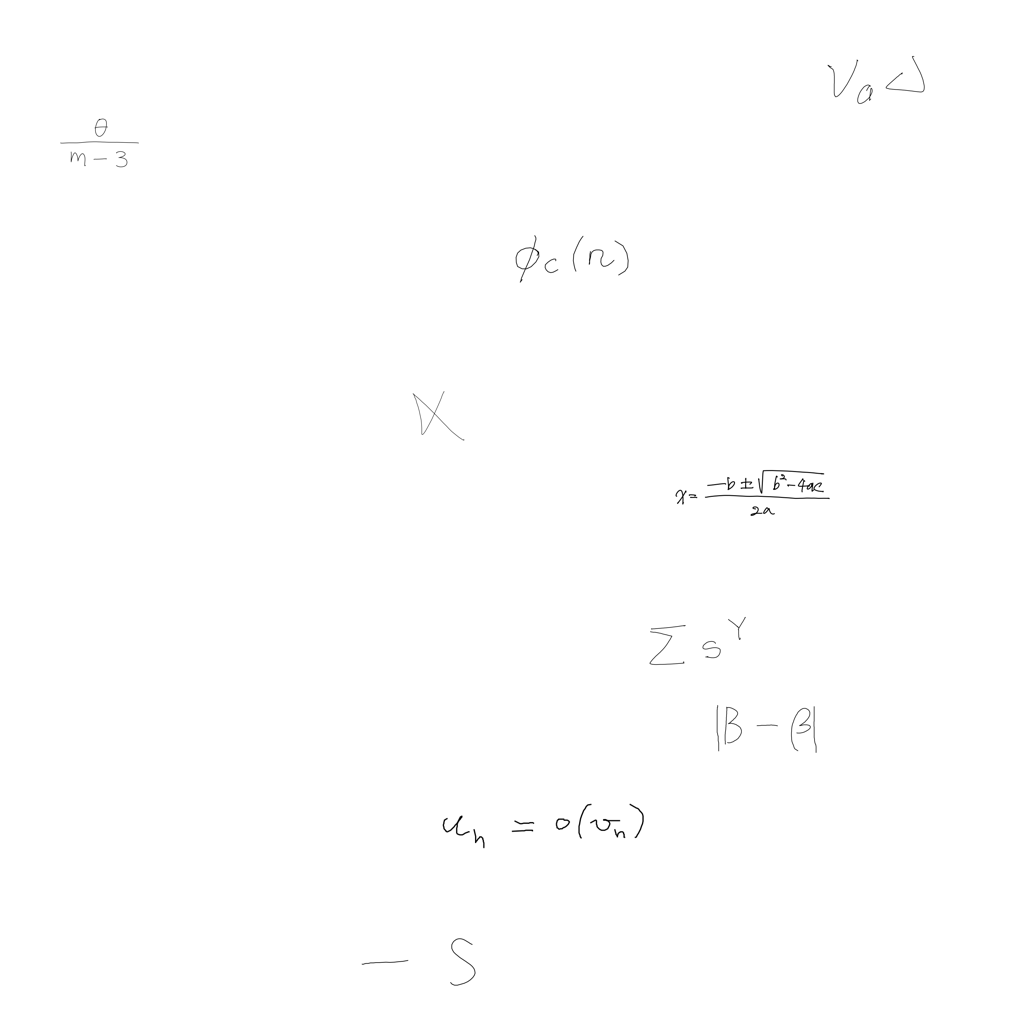 V_a Δ
\frac{\theta}{m-3}
\phi_c(n)
x = \frac{-b \pm \sqrt{b^2-4ac}}{2a}
\sum s^Y
|B - \beta|
u_n = o(v_n)
- S